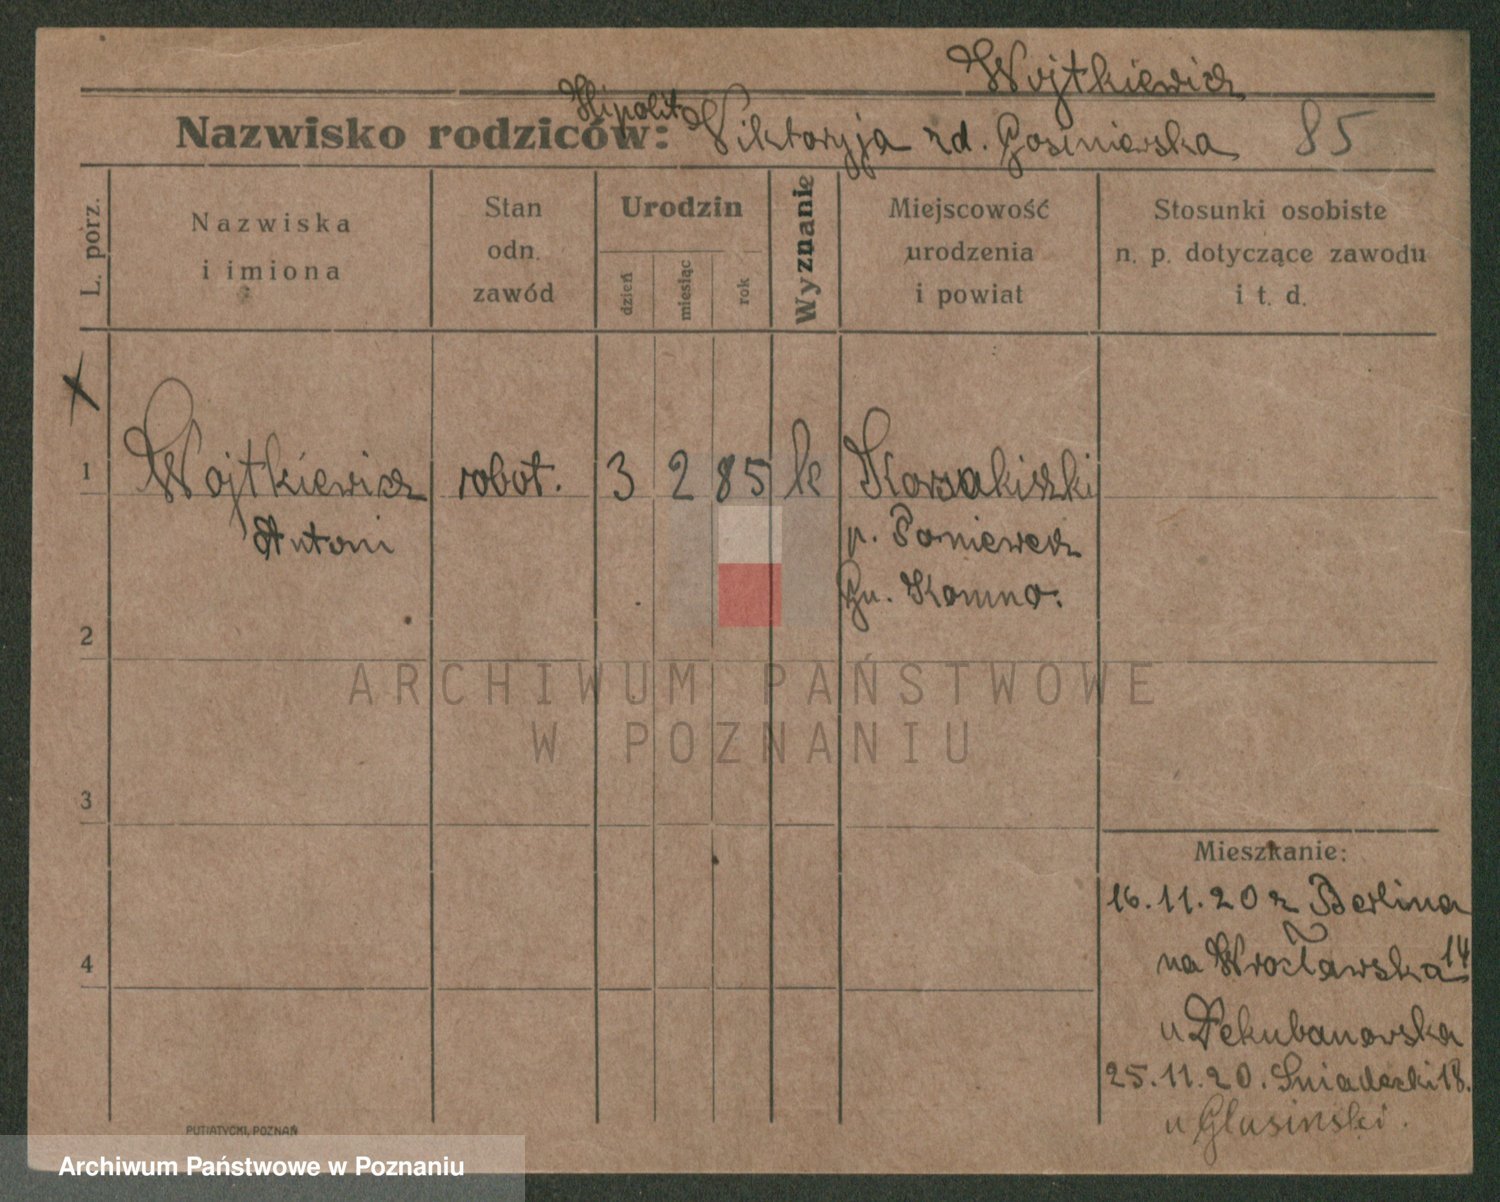 Wojtkiewicz
Hipolit
Nazwisko rodziców: Wiktoryja zd. 85
L. porz.
Nazwiska
i imiona
Stan
odn.
zawód
Urodzin
dzień
miesiąc
rok
Wyznanie
Miejscowość
urodzenia
i powiat
Stosunki osobiste
n. p. dotyczące zawodu
i t. d.
1 Wojtkiewicz robot. 3 2 85 k
Antoni p. Poniewecz
Gu. Kowno.
2
3
4
Mieszkanie:
16.11.20 z Berlina
na Wrocławska 14
u
25.11.20. Sniadecki 18.
u Glusinski.
PUTIATYCKI, POZNAŃ
ARCHIWUM PAŃSTWOWE
W POZNANIU
Archiwum Państwowe w Poznaniu